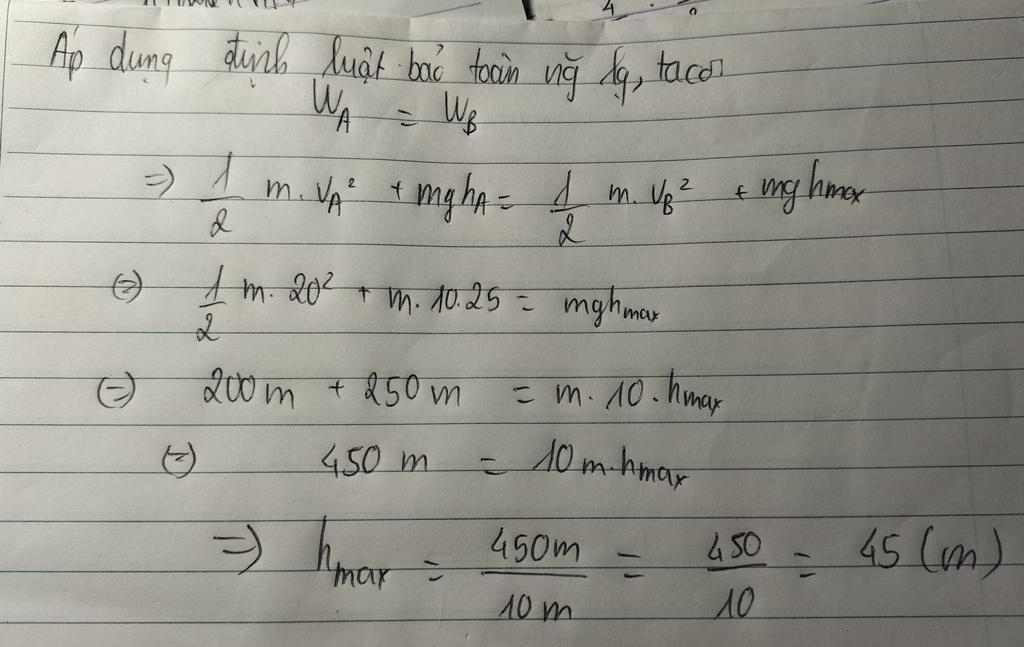 Áp dụng định luật bảo toàn ng̃ lg, ta có:
W_A = W_B
=> 1/2 m. v_A² + mgh_A = 1/2 m. v_B² + mgh_max
(=) 1/2 m. 20² + m. 10. 25 = mgh_max
(=) 200m + 250m = m. 10. h_max
(=) 450 m = 10 m. h_max
=> h_max = 450m/10m = 450/10 = 45 (m)